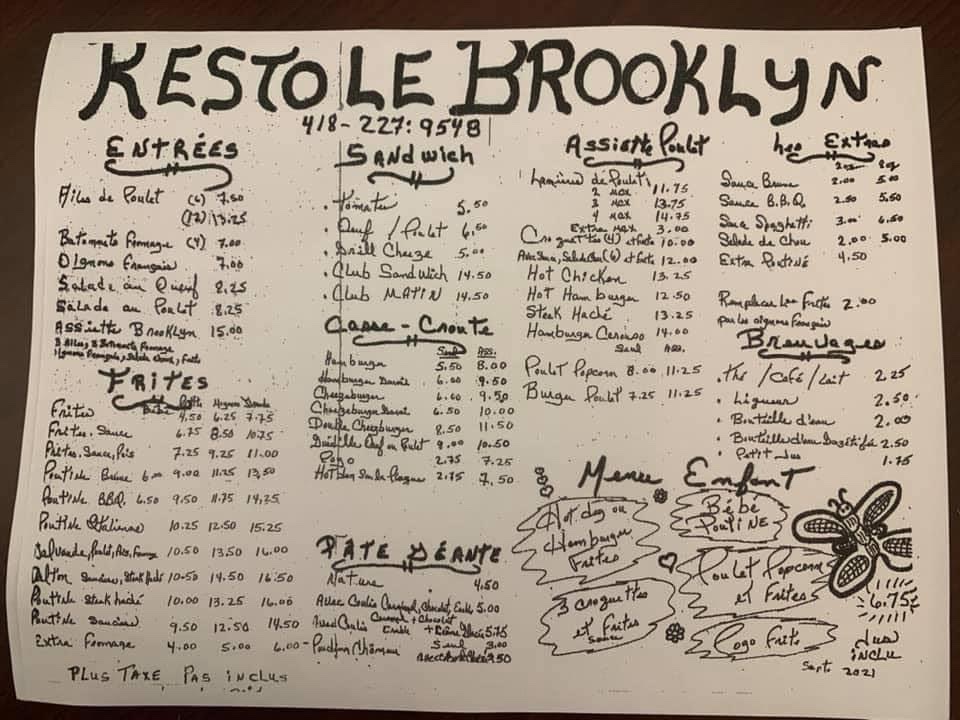 RESTO LE BROOKLYN
418-227-9548
ENTRÉES
Ailes de Poulet (6) 7.50
(12) 13.25
Batonnets Fromage (4) 7.00
Oignons Français 7.00
Salade au Oeuf 8.25
Salade au Poulet 8.25
Assiette Brooklyn 15.00
FRITES
Bébé Petite Moyenne Grande
Frites 4.50 6.25 7.75
Frites, Sauce 6.75 8.50 10.75
Frites, Sauce, Pois 7.25 9.25 11.00
Poutine Brune 6.00 9.00 11.25 13.50
Poutine B.B.Q. 6.50 9.50 11.75 14.75
Poutine Italienne 10.25 12.50 15.25
Galvaude, Poulet, Pois, Fromage 10.50 13.50 16.00
Dalton Saucisse, Steak haché 10.50 14.50 16.50
Poutine Steak haché 10.00 13.25 16.00
Poutine Saucisse 9.50 12.50 14.50
Extra Fromage 4.00 5.00 6.00
PLUS TAXE PAS INCLUS
SANDWICH
• Tomates 5.50
• Oeuf / Poulet 6.50
• Grill Cheeze 5.00
• Club Sandwich 14.50
• Club MATIN 14.50
Casse-Croute
Seul Ass.
Hamburger 5.50 8.00
Hamburger 6.00 9.50
Cheezeburger 6.00 9.50
Cheezeburger 6.50 10.00
Double Cheezburger 8.50 11.50
Guédille Oeuf ou Poulet 9.00 10.50
Pogo 2.75 7.25
Hot Dog 2.75 7.50
PÂTE GÉANTE
Nature 4.50
Avec Coulis Caramel, Chocolat, Érable 5.00
Avec Coulis Caramel, Chocolat
Érable + Crème Glacée 5.75
Pouding Chômeur Seul 3.00
ASSIETTE Poulet
Lanière de Poulet
2 mcx 11.75
3 mcx 13.75
4 mcx 14.75
Extra mcx 3.00
Croquettes (4) et frites 10.00
12.00
Hot Chicken 13.25
Hot Hamburger 12.50
Steak Haché 13.25
Hamburger 14.00
Seul Ass.
Poulet Popcorn 8.00 11.25
Burger Poulet 7.25 11.25
Les Extras
2oz 8oz
Sauce Brune 2.00 5.00
Sauce B.B.Q. 2.50 5.50
Sauce Spaghetti 3.00 6.50
Salade de Chou 2.00 5.00
Extra Poutine 4.50
Remplacer les Frites 2.00
par les oignons Français
Breuvages
• Thé / Café / Lait 2.25
• Liqueur 2.50
• Bouteille d'eau 2.00
• Bouteille d'eau Gazéifiée 2.50
• Petit Jus 1.75
Menu Enfant
Hot dog ou
Hamburger
Frites
Bébé
Poutine
Poulet Popcorn
et Frites
3 croquettes
et Frites
sauce
Pogo Frite
6.75
Jus
inclu
Sept. 2021